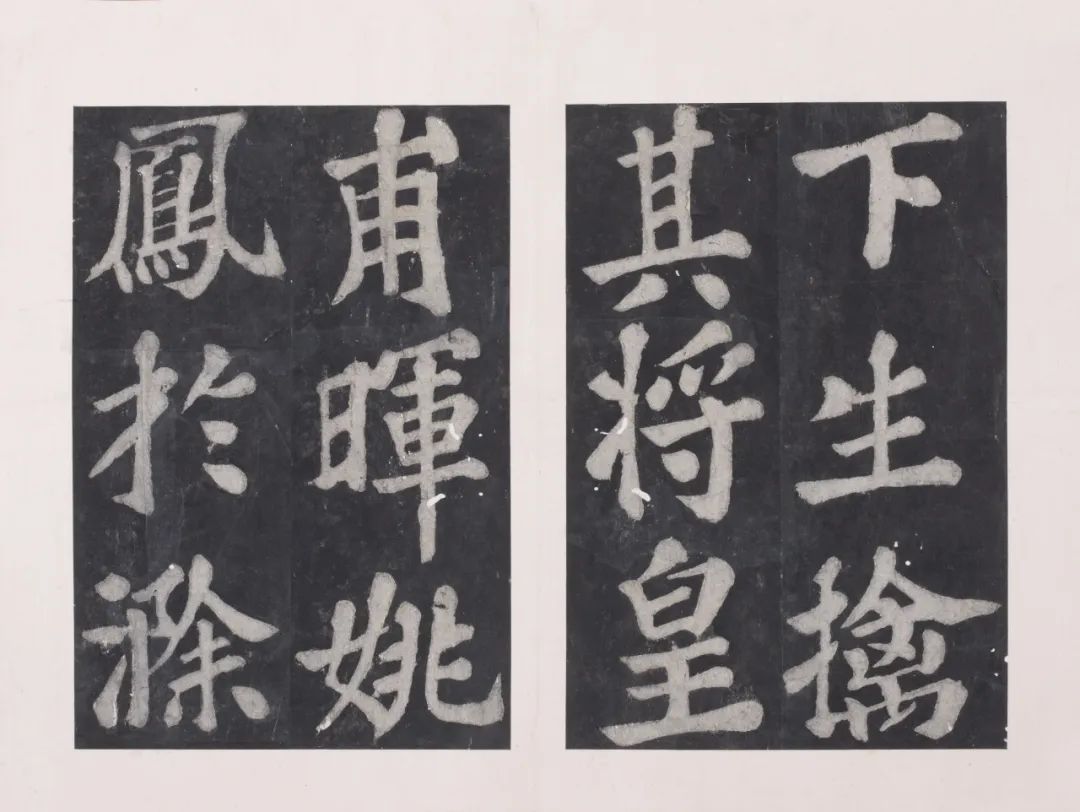 下生擒
其將皇
甫暉姚
鳳於滁